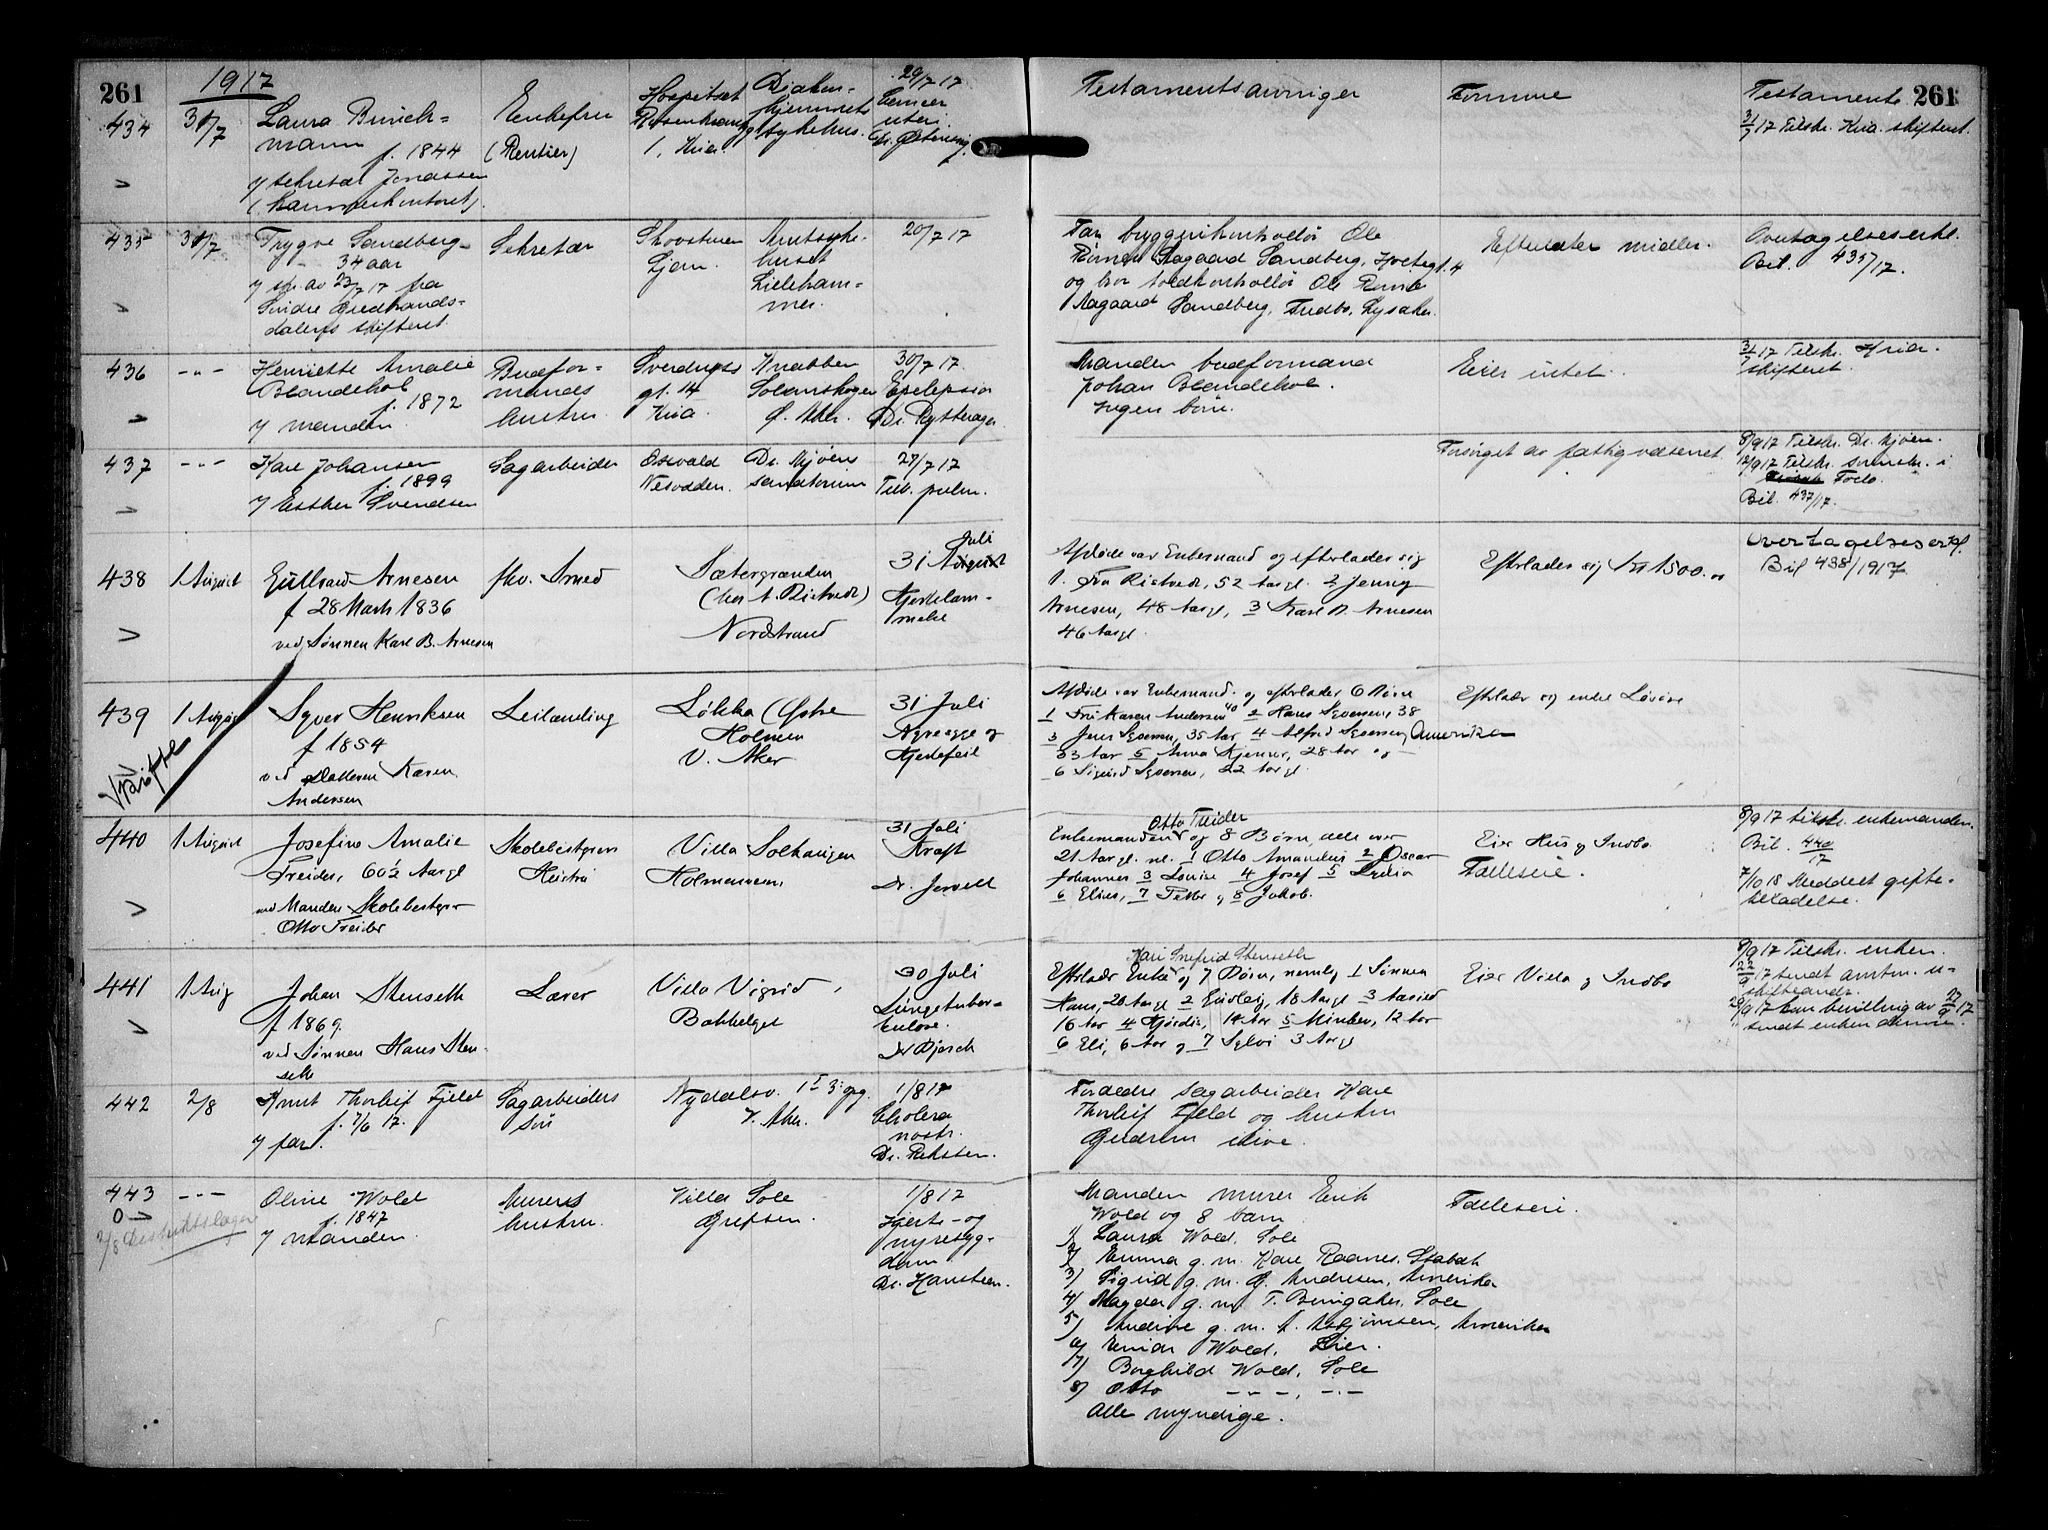 261
1917
261
434
30/7
Laura Burich-
mann
f. 1844
v/ sekretær Jonassen
(kammerkontoret).
Enkefru
(Rentier)
Hospitset
Rosenkrantzgt.
1, Kria.
Diakon-
hjemmets
sykehus.
29/7 17
Cancer
uteri
Testamentsarvinger
Formue
Testamente
31/7 17 Tilskr. Kria. skifteret.
435
30/7
Trygve Sandberg
34 aar
v/ skr. av 23/7 17 fra
Søndre Gudbrands-
dalens skifteret.
Sekretær
Skovstuen
Ljan.
Amtssyke-
huset
Lilleham-
mer.
20/7 17
Far bryggerikontrollør Ole
Rømer Aagaard Sandberg, Holtegt. 4
og bror toldkontrollør Ole Rømer
Aagaard Sandberg, Fredbo, Lysaker.
Efterlater midler.
Overtagelseserkl.
Bil. 435/17.
436
-"-
Henriette Amalie
Blandehol
f. 1872
v/ manden.
Budfor-
mands
hustru.
Sverdrups
gt. 14
Kria.
Knabben
Solemskogen
Ø. Aker.
30/7 17.
Epelepsia
Dr. Rytterager
Manden budformand
Johan Blandehol.
Ingen børn.
Eier intet.
31/7 17 Tilskr. Kria.
skifteret.
437
-"-
Karl Johansen
f. 1899
v/ Esther Svendsen
Sagarbeider
Oswald
Nesodden.
Dr. Mjøens
sanatorium
27/7 17
Tub. pulm.
Forsørget av fattigvæsenet
8/9 17 Tilskr. Dr. Mjøen.
12/9 17 Tilskr. sorenskr. i
Follo.
Bil. 437/17.
438
1 August
Gulbrand Arnesen
f 28 Marts 1836
ved Sønnen Karl B. Arnesen
fhv. Smed
Sætergrænden
(hos A. Ristvedt)
Nordstrand
31 August
Juli
Hjertelam-
melse
Afdøde var Enkemand og efterlader sig
1. Fru Ristvedt, 52 Aargl. 2 Jenny
Arnesen, 48 Aargl, 3 Karl B. Arnesen
46 Aargl.
Efterlader sig Kr 1500.00
Overtagelseserkl.
Bil 438/1917
439
1 August
Syver Henriksen
f 1854
ved Datteren Karen
Andersen
Leilænding
Løkka (Østre
Holmen
V. Aker
31 Juli
Nyresyge og
Hjertefeil
Afdøde var Enkemand og efterlader 6 Børn
1 Fru Karen Andersen 40 2 Hans Syversen, 38
3 Jens Syversen, 35 Aar 4 Alfred Syversen, Amerika
33 Aar 5 Anna Kjenner, 28 Aar og
6 Sigurd Syversen, 22 Aargl.
Efterlader sig endel Løsøre
440
1 August
Josefine Amalie
Treider, 60½ Aargl
ved Manden Skolebestyrer
Otto Treider
Skolebestyrers
Hustru
Villa Solhaugen
Holmenveien
31 Juli
Kræft
Dr. Jervell
Otto Treider
Enkemanden og 8 Børn, alle over
21 Aargl. nl. 1 Otto Amandus 2 Oscar
Johannes 3 Louise 4 Josef 5 Lydia
6 Elise, 7 Petter og 8 Jakob.
Eier Hus og Indbo
Fælleseie.
8/9 17 tilskr. enkemanden.
Bil. 440/17
7/10 18 Meddelt gifte-
tilladelse.
441
1 Aug
Johan Stenseth
f 1869.
ved Sønnen Hans Sten-
seth
Lærer
Villa Vigrid,
Bakkelaget
30 Juli
Lungetuber-
kulose
Kari Ingfrid Stenseth
Efterlader Enke og 7 Børn, nemlig 1 Sønnen
Hans, 20 Aargl 2 Gudleig, 18 Aargl 3
16 Aar 4 Hjørdis, 14 Aar 5 12 Aar
6 Eli, 6 Aar og 7 Sylvi 3 Aargl
Eier Villa og Indbo
8/9 17 Tilskr. enken.
22/9 17 sendt amtm. u-
skifteandr.
29/9 17 kun bevilling av 27/9 17
sendt enken denne.
442
2/8
Knut Thorleif Fjeld
f. 7/6 17.
v/ far.
Sagarbeiders
søn
Nydalsv. 15 3. opg.
V. Aker.
1/8 17
Cholera
nostr.
Dr. Reksten.
Forældre sagarbeider Karl
Thorleif Fjeld og hustru
Gudrun
443
-"-
Oline Wold
f. 1847
v/ manden.
Murers
hustru.
Villa Sole
Grefsen.
1/8 17
Hjerte- og
nyresyg-
dom
Dr. Hansteen.
Manden murer Erik
Wold og 8 barn
1) Laura Wold, Sole
2) Emma g. m. Karl Raanes, Stabæk
3) Sigrid g. m. G. Andresen, Amerika
4) Magda g. m. T. Bingaker, Sole
5) Andine g. m. A. Asbjørnsen, Amerika
6) Wold, Lier.
7) Borghild Wold, Sole
8) Otto -"-, -"-
Alle myndige.
Fælleseie.